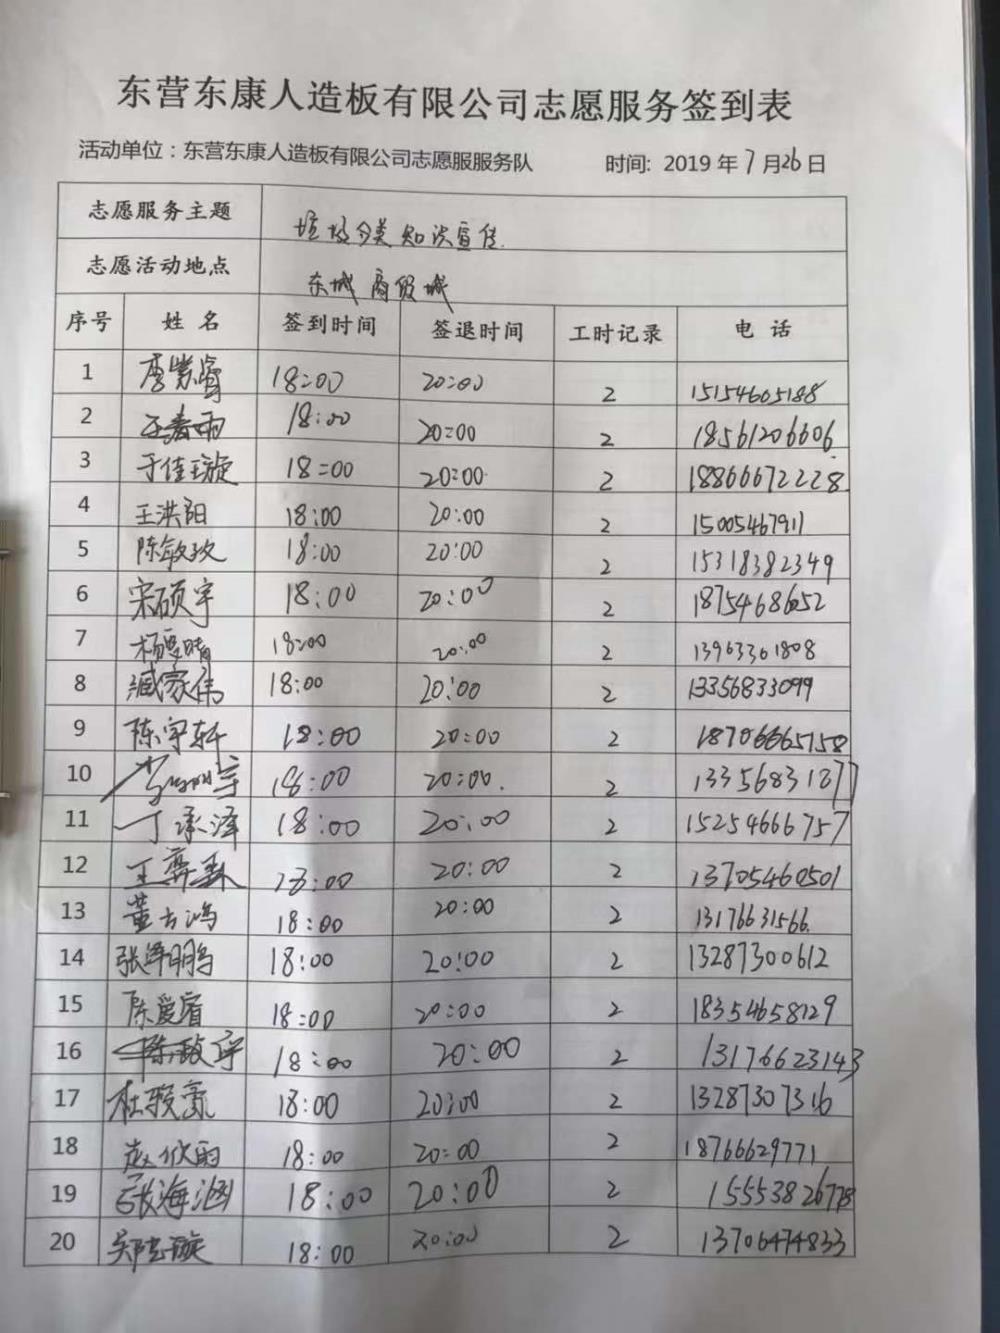 东营东康人造板有限公司志愿服务签到表
活动单位：东营东康人造板有限公司志愿服服务队 时间: 2019 年 7 月 26 日
志愿服务主题 垃圾分类知识宣传.
志愿活动地点 东城 商贸城
序号 姓 名 签到时间 签退时间 工时记录 电 话
1 李紫睿 18:00 20:00 2 15154605188
2 王春雨 18:00 20:00 2 18561206606
3 于佳璇 18:00 20:00 2 18866672228
4 王洪阳 18:00 20:00 2 15005467911
5 陈敏玫 18:00 20:00 2 15318382349
6 宋硕宇 18:00 20:00 2 18754686052
7 杨雯晴 18:00 20:00 2 13963361808
8 臧家伟 18:00 20:00 2 13356833099
9 陈宇轩 18:00 20:00 2 18706665758
10 18:00 20:00 2 13356831877
11 丁承泽 18:00 20:00 2 15254666757
12 王弈霖 18:00 20:00 2 13705460501
13 董士鸿 18:00 20:00 2 13176631566
14 张泽鹏 18:00 20:00 2 13287300612
15 陈爱睿 18:00 20:00 2 18354658129
16 18:00 20:00 2 13176623143
17 杜骏豪 18:00 20:00 2 13287307316
18 赵欣雨 18:00 20:00 2 18766629771
19 张海涵 18:00 20:00 2 15553826778
20 18:00 20:00 2 13706474833